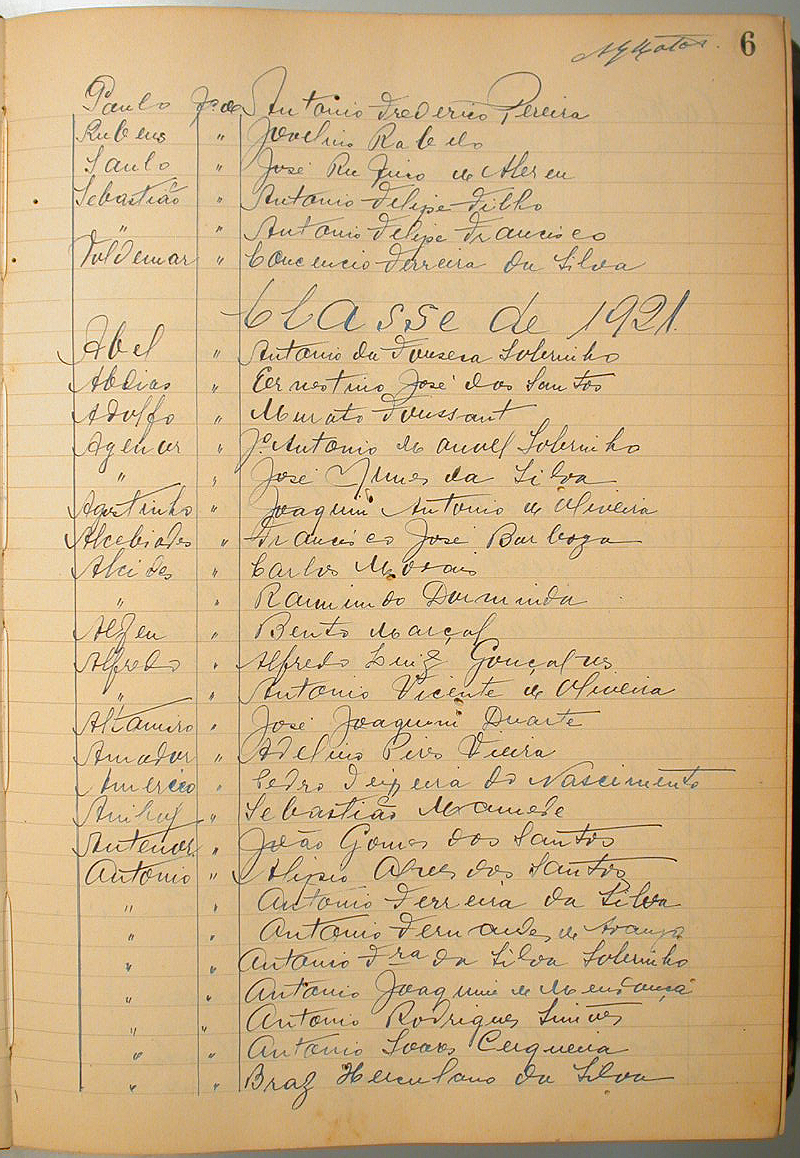 6
Paulo fo. de Antonio Frederico Pereira
Rubens " Jovelino Rabelo
Saulo " José Rufino de Abreu
Sebastião " Antonio Felipe Filho
" " Antonio Felipe Francisco
Voldemar " Concencio Ferreira da Silva
Classe de 1921.
Abel " Antonio da Fonseca Sobrinho
Abdias " Ernestino José dos Santos
Adolfo " Murato Foussant
Agenor " Je. Antonio Manoel Sobrinho
" " José Nunes da Silva
Agostinho " Joaquim Antonio de Oliveira
Alcebiades " Francisco José Barboza
Alcides " Carlos Morais
" " Raimundo Dorminda
Alfeu " Bento Marçal
Alfredo " Alfredo Luiz Gonçalves
" " Antonio Vicente de Oliveira
Altamiro " José Joaquim Duarte
Amador " Adelino Pires Vieira
Americo " Pedro Teixeira do Nascimento
" Sebastião Mamede
Antenor " João Gomes dos Santos
Antonio " Alipio Alves dos Santos
" " Antonio Ferreira da Silva
" " Antonio Fernandes de Araujo
" " Antonio Fra da Silva Sobrinho
" " Antonio Joaquim de Mendonça
" " Antonio Rodrigues Simões
" " Antonio Soares Cerqueira
" " Braz Herculano da Silva